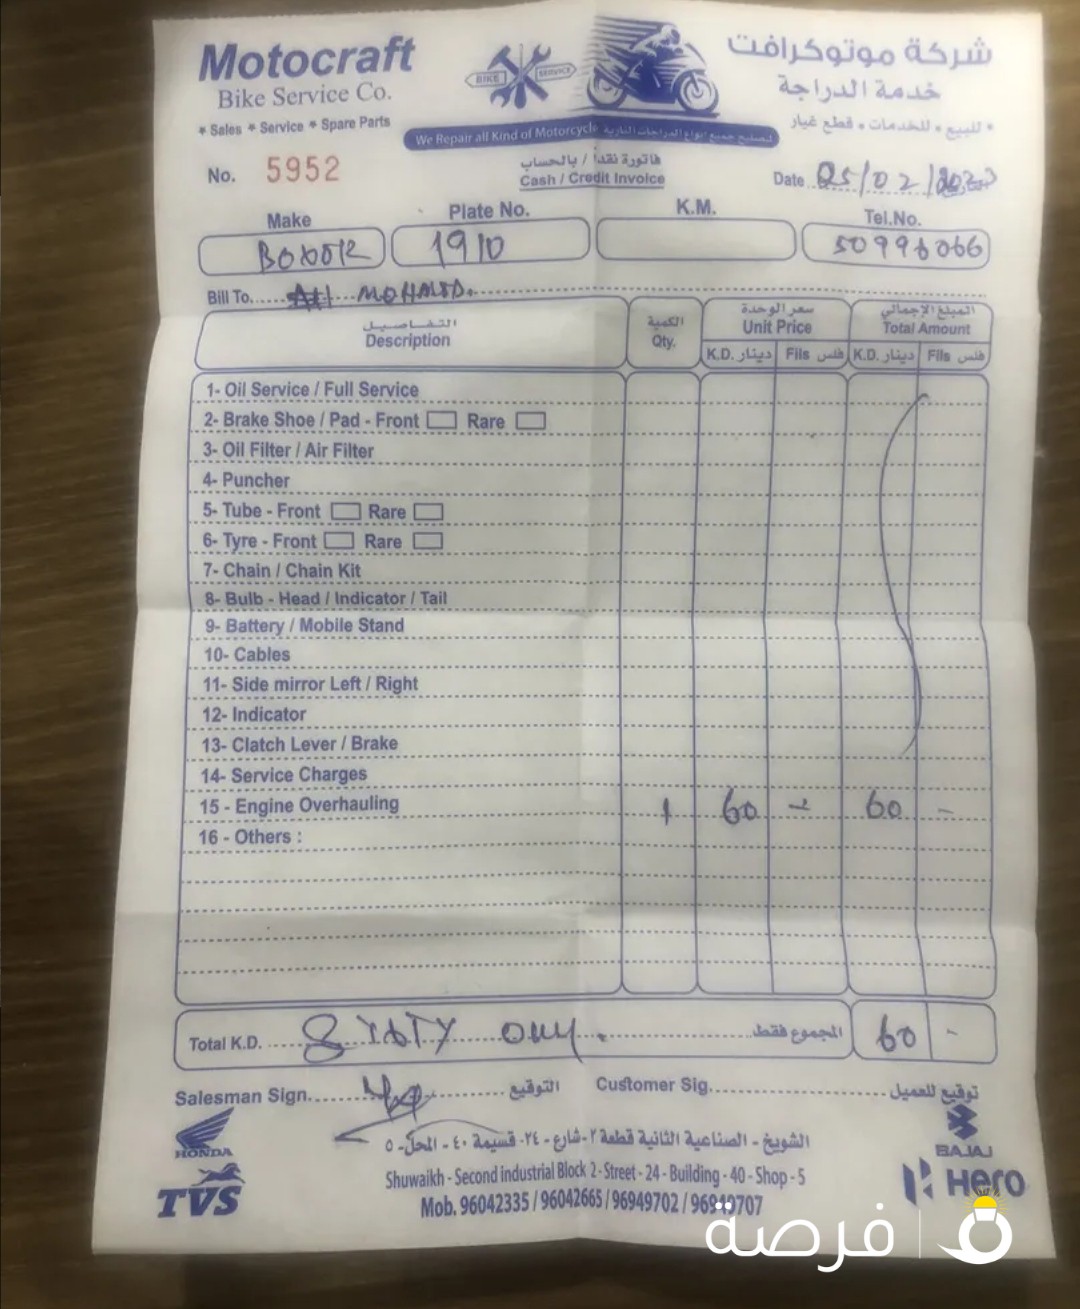 Motocraft
Bike Service Co.
* Sales * Service * Spare Parts
BIKE SERVICE
شركة موتوكرافت
خدمة الدراجة
* للبيع * للخدمات * قطع غيار
We Repair all Kind of Motorcycle تصليح جميع انواع الدراجات النارية
No. 5952
فاتورة نقداً / بالحساب
Cash / Credit Invoice
Date 25/02/
Make Plate No. K.M. Tel.No.
BOXER 1910 50996066
Bill To. MOHAMED.
التفاصيل الكمية سعر الوحدة المبلغ الإجمالي
Description Qty. Unit Price Total Amount
K.D. دينار Fils فلس K.D. دينار Fils فلس
1- Oil Service / Full Service
2- Brake Shoe / Pad - Front Rare
3- Oil Filter / Air Filter
4- Puncher
5- Tube - Front Rare
6- Tyre - Front Rare
7- Chain / Chain Kit
8- Bulb - Head / Indicator / Tail
9- Battery / Mobile Stand
10- Cables
11- Side mirror Left / Right
12- Indicator
13- Clatch Lever / Brake
14- Service Charges
15 - Engine Overhauling 1 60 - 60 -
16 - Others :
Total K.D. SIXTY ONLY. المجموع فقط 60 -
Salesman Sign. التوقيع Customer Sig. توقيع للعميل
الشويخ - الصناعية الثانية قطعة ٢ - شارع - ٢٤ - قسيمة ٤٠ - المحل - ٥
Shuwaikh - Second industrial Block 2 - Street - 24 - Building - 40 - Shop - 5
Mob. 96042335 / 96042665 / 96949702 / 96949707
HONDA
TVS
BAJAJ
Hero
فرصة